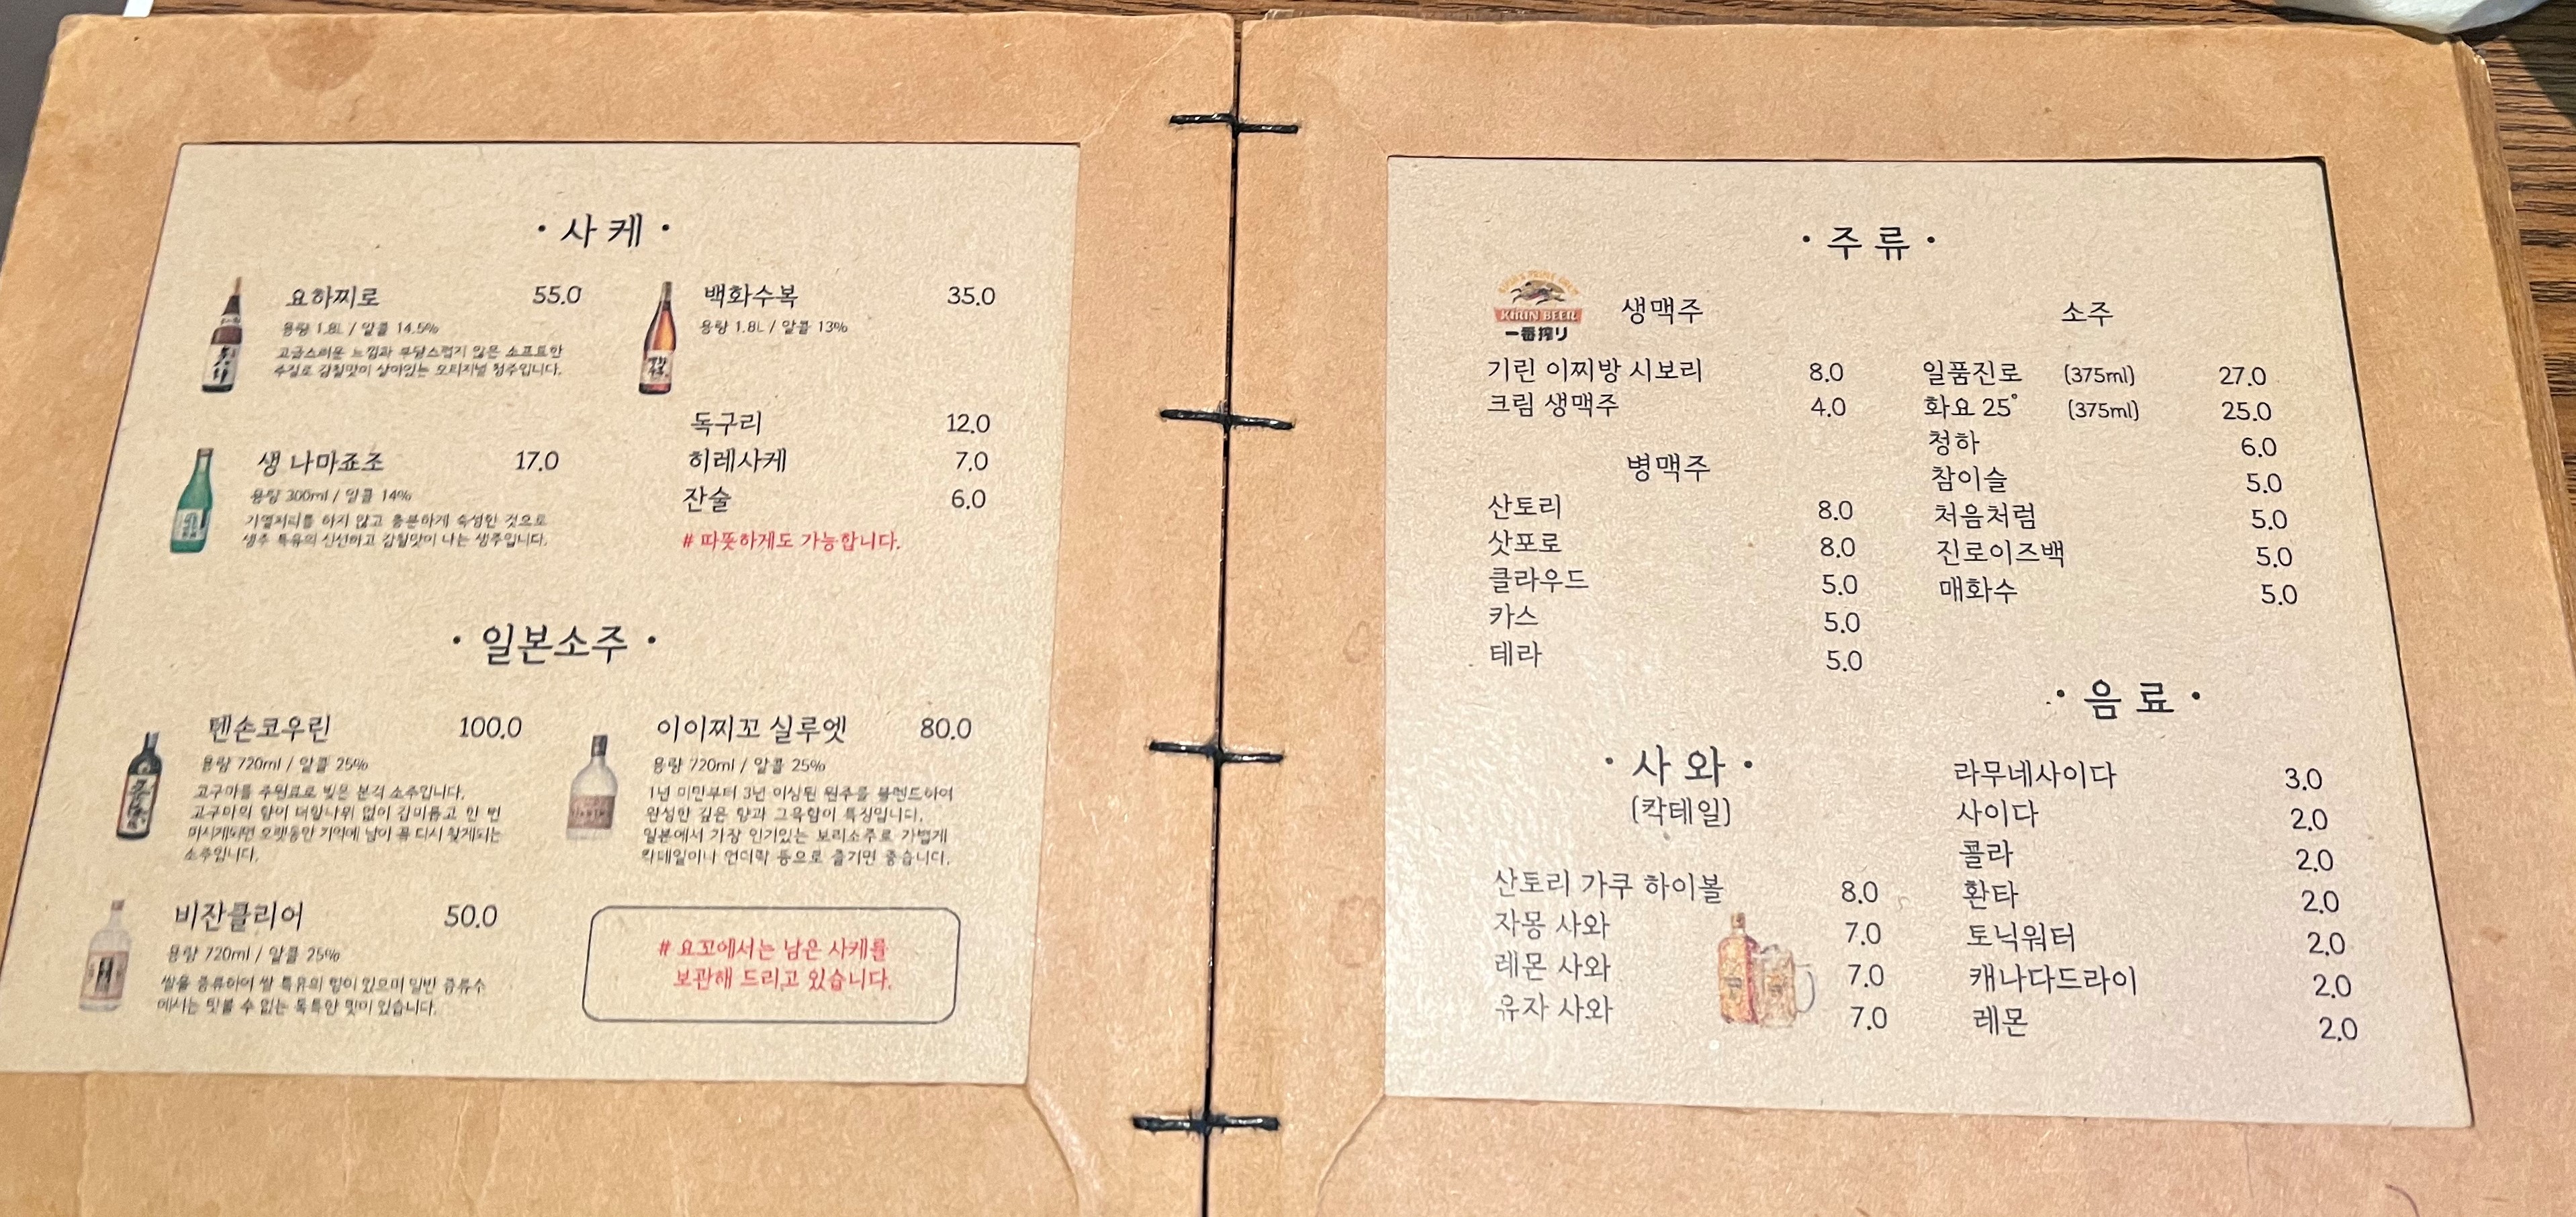 · 사 케 ·
요하찌로 55.0
용량 1.8L / 알콜 14.5%
고급스러운 느낌과 부담스럽지 않은 소프트한
주질로 감칠맛이 살아있는 오리지널 청주입니다.
생 나마죠조 17.0
용량 300ml / 알콜 14%
가열처리를 하지 않고 충분하게 숙성한 것으로
생주 특유의 신선하고 감칠맛이 나는 생주입니다.
백화수복 35.0
용량 1.8L / 알콜 13%
독구리 12.0
히레사케 7.0
잔술 6.0
# 따뜻하게도 가능합니다.
· 일본소주 ·
텐손코우린 100.0
용량 720ml / 알콜 25%
고구마를 주원료로 빚은 본격 소주입니다.
고구마의 향이 더할나위 없이 감미롭고 한 번
마시게되면 오랫동안 기억에 남아 꼭 다시 찾게되는
소주입니다.
비잔클리어 50.0
용량 720ml / 알콜 25%
쌀을 증류하여 쌀 특유의 향이 있으며 일반 증류소
에서는 맛볼 수 없는 독특한 맛이 있습니다.
이이찌꼬 실루엣 80.0
용량 720ml / 알콜 25%
1년 미만부터 3년 이상된 원주를 블렌드하여
완성한 깊은 향과 그윽함이 특징입니다.
일본에서 가장 인기있는 보리소주로 가볍게
칵테일이나 언더락 등으로 즐기면 좋습니다.
# 요꼬에서는 남은 사케를
보관해 드리고 있습니다.
· 주 류 ·
KIRIN BEER
一番搾り
생맥주
기린 이찌방 시보리 8.0
크림 생맥주 4.0
병맥주
산토리 8.0
삿포로 8.0
클라우드 5.0
카스 5.0
테라 5.0
소주
일품진로 (375ml) 27.0
화요 25° (375ml) 25.0
청하 6.0
참이슬 5.0
처음처럼 5.0
진로이즈백 5.0
매화수 5.0
· 사 와 ·
(칵테일)
산토리 가쿠 하이볼 8.0
자몽 사와 7.0
레몬 사와 7.0
유자 사와 7.0
· 음 료 ·
라무네사이다 3.0
사이다 2.0
콜라 2.0
환타 2.0
토닉워터 2.0
캐나다드라이 2.0
레몬 2.0